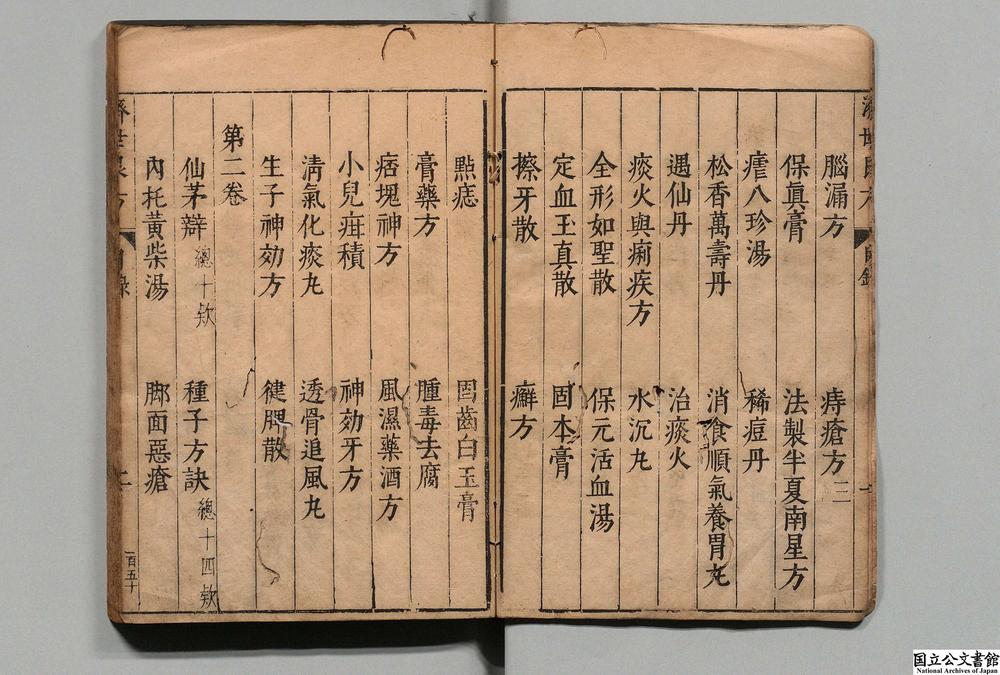 腦漏方 痔瘡方三
保眞膏 法製半夏南星方
瘧八珍湯 稀痘丹
松香萬壽丹 消食順氣養胃丸
遇仙丹 治痰火
痰火與痢疾方 水沉丸
全形如聖散 保元活血湯
定血玉真散 固本膏
擦牙散 癬方
點痣 固齒白玉膏
膏藥方 腫毒去腐
痞塊神方 風濕藥酒方
小兒疳積 神効牙方
淸氣化痰丸 透骨追風丸
生子神効方 健脾散
第二卷
仙茅辯 總十欵 種子方訣 總十四欵
內托黃柴湯 脚面惡瘡
一百五十
国立公文書館
National Archives of Japan